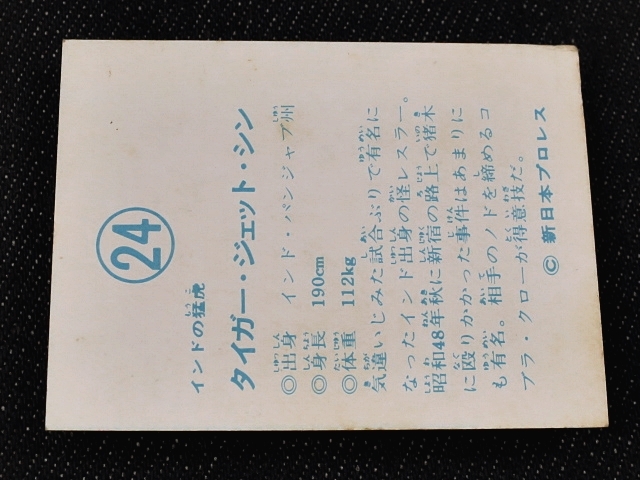 24
インドの猛虎
タイガー・ジェット・シン
◎出身 インド・パンジャブ州
◎身長 190cm
◎体重 112kg
気違いじみた試合ぶりで有名に
なったインド出身の怪レスラー。
昭和48年秋に新宿の路上で猪木
に殴りかかった事件はあまりに
も有名。相手のノドを締めるコ
ブラ・クローが得意技だ。
© 新日本プロレス